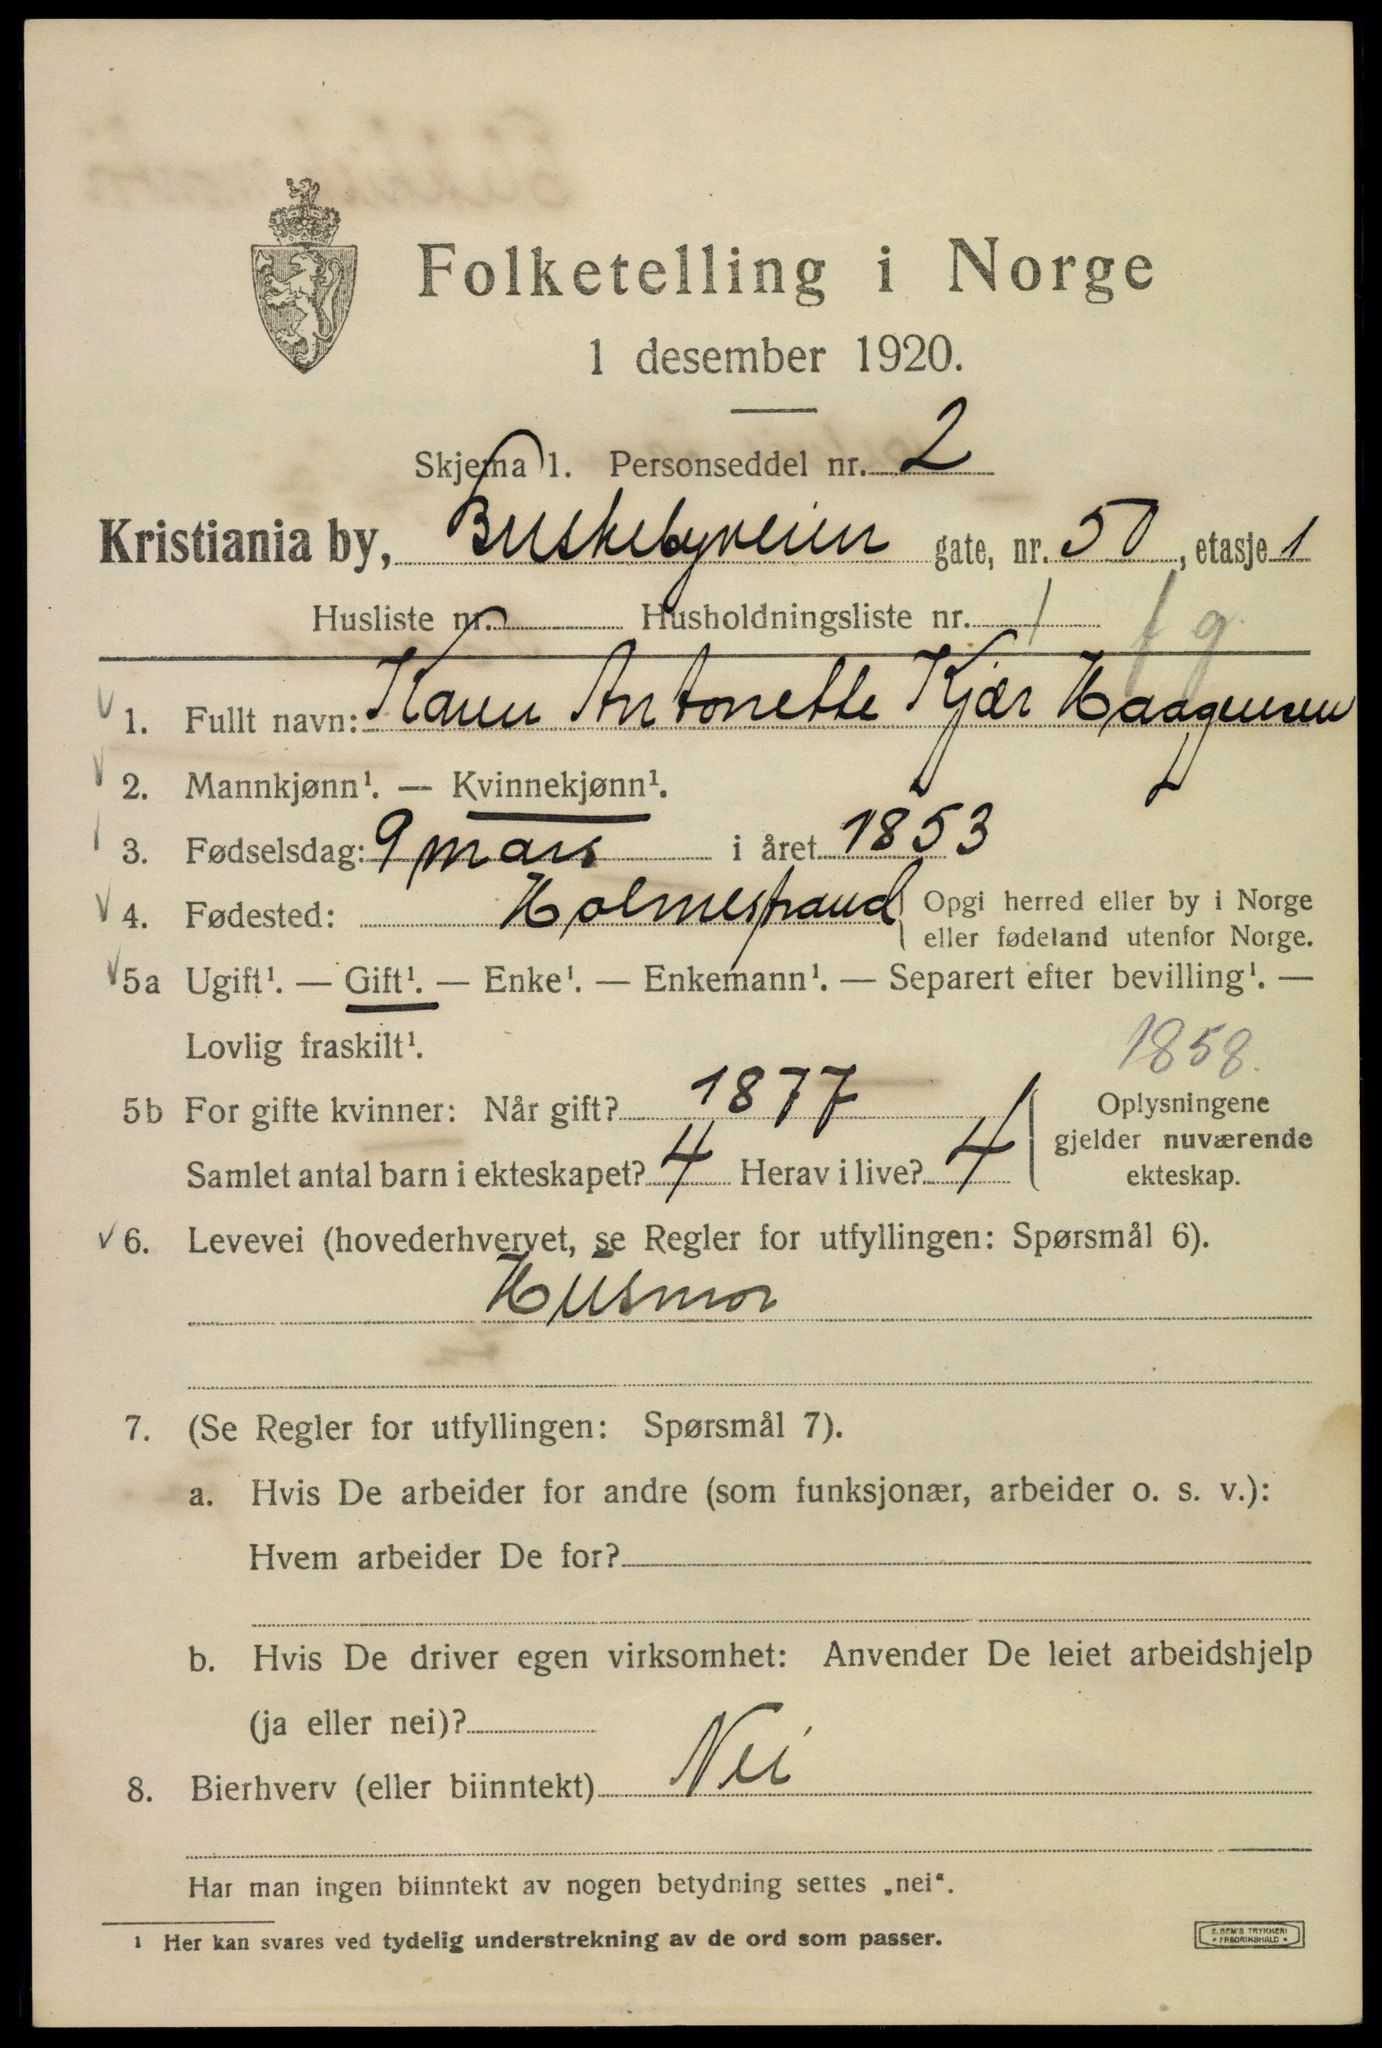 Folketelling i Norge
1 desember 1920.
Skjema 1. Personseddel nr. 2
Kristiania by, Buskebyveien gate, nr. 50, etasje 1
Husliste nr. Husholdningsliste nr. 1
1. Fullt navn: Karen Antonette Kjær Haagensen
2. Mannkjønn¹. — Kvinnekjønn¹.
3. Fødselsdag: 9 mars i året 1853
4. Fødested: Holmestrand Opgi herred eller by i Norge
eller fødeland utenfor Norge.
5a Ugift¹. — Gift¹. — Enke¹. — Enkemann¹. — Separert efter bevilling¹. —
Lovlig fraskilt¹.
1858.
5b For gifte kvinner: Når gift? 1877 Oplysningene
gjelder nuværende
Samlet antal barn i ekteskapet? 4 Herav i live? 4 ekteskap.
6. Levevei (hovederhvervet, se Regler for utfyllingen: Spørsmål 6).
Husmor
7. (Se Regler for utfyllingen: Spørsmål 7).
a. Hvis De arbeider for andre (som funksjonær, arbeider o. s. v.):
Hvem arbeider De for?
b. Hvis De driver egen virksomhet: Anvender De leiet arbeidshjelp
(ja eller nei)?
8. Bierhverv (eller biinntekt) Nei
Har man ingen biinntekt av nogen betydning settes „nei“.
¹ Her kan svares ved tydelig understrekning av de ord som passer.
E. SEM'S TRYKKERI
* FREDRIKSHALD *